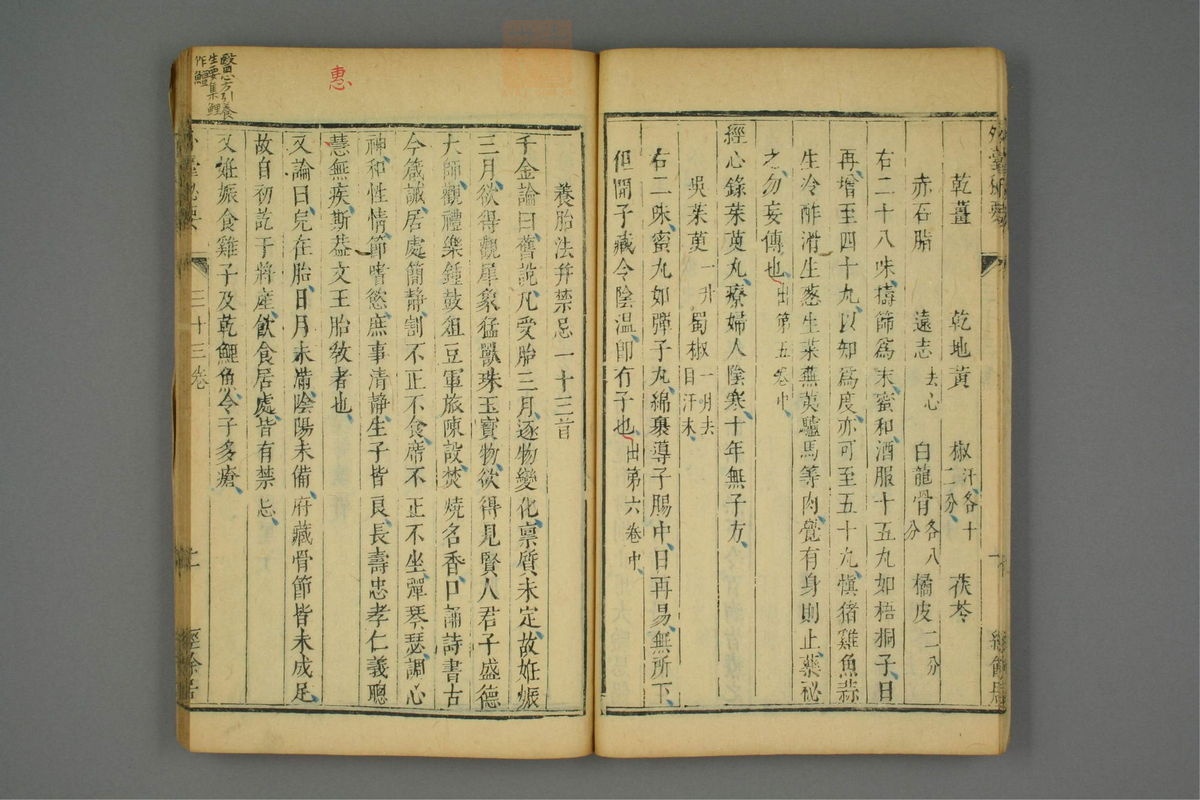 乾薑 乾地黃 椒汗各十二分 茯苓
赤石脂 遠志去心 白龍骨各八分 橘皮二分
右二十八味擣篩爲末蜜和酒服十五丸如梧桐子日
再增至四十丸以知爲度亦可至五十丸愼猪雞魚蒜
生冷酢滑生葱生菜蕪荑驢馬等肉覺有身則止藥祕
之勿妄傳也出第五卷中
經心錄茱萸丸療婦人陰寒十年無子方
吳茱萸一升 蜀椒一升去目汗末
右二味蜜丸如彈子丸綿裹導子腸中日再易無所下
但開子藏令陰溫卽有子也出第六卷中
養胎法幷禁忌一十三首
千金論曰舊說凡受胎三月逐物變化稟質未定故妊娠
三月欲得觀犀象猛獸珠玉寶物欲得見賢人君子盛德
大師觀禮樂鍾鼓俎豆軍旅陳設焚燒名香口誦詩書古
今箴誡居處簡靜割不正不食席不正不坐彈琴瑟調心
神和性情節嗜慾庶事清靜生子皆良長壽忠孝仁義聰
慧無疾斯葢文王胎敎者也
又論曰兒在胎日月未滿陰陽未備府藏骨節皆未成足
故自初訖于將產飮食居處皆有禁忌
又妊娠食雞子及乾鯉魚令子多瘡
惠
醫心方引養
生要集鯉
作鱓
三十三卷
經餘居